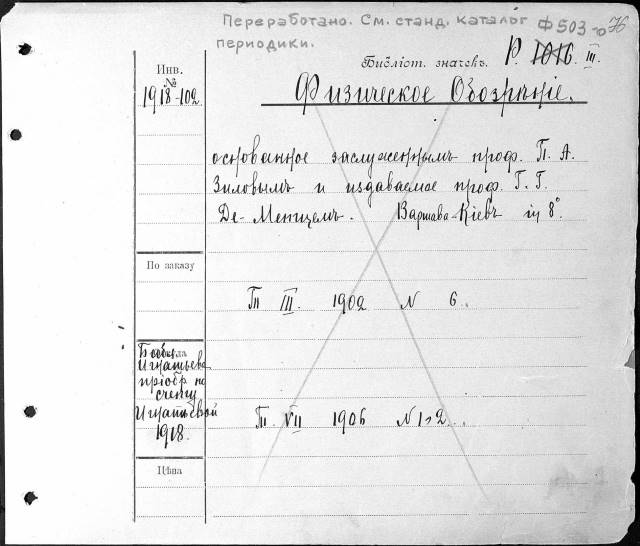 Переработано. См. станд. каталог Ф503-0
периодики.
Инв.
№
1918-102
Библіот. значекъ. Р. 1016. III.
Физическое Обозрѣніе.
основанное заслуженнымъ проф. П. А.
Зиловымъ и издаваемое проф. Г. Г.
Де-Метцемъ. Варшава-Кіевъ in 8°.
По заказу
Т. III. 1902 N 6.
Игнатьева
пріобр. на
счетъ
Игнатьевой
1918.
Т. VII 1906 N 1, 2.
Цѣна